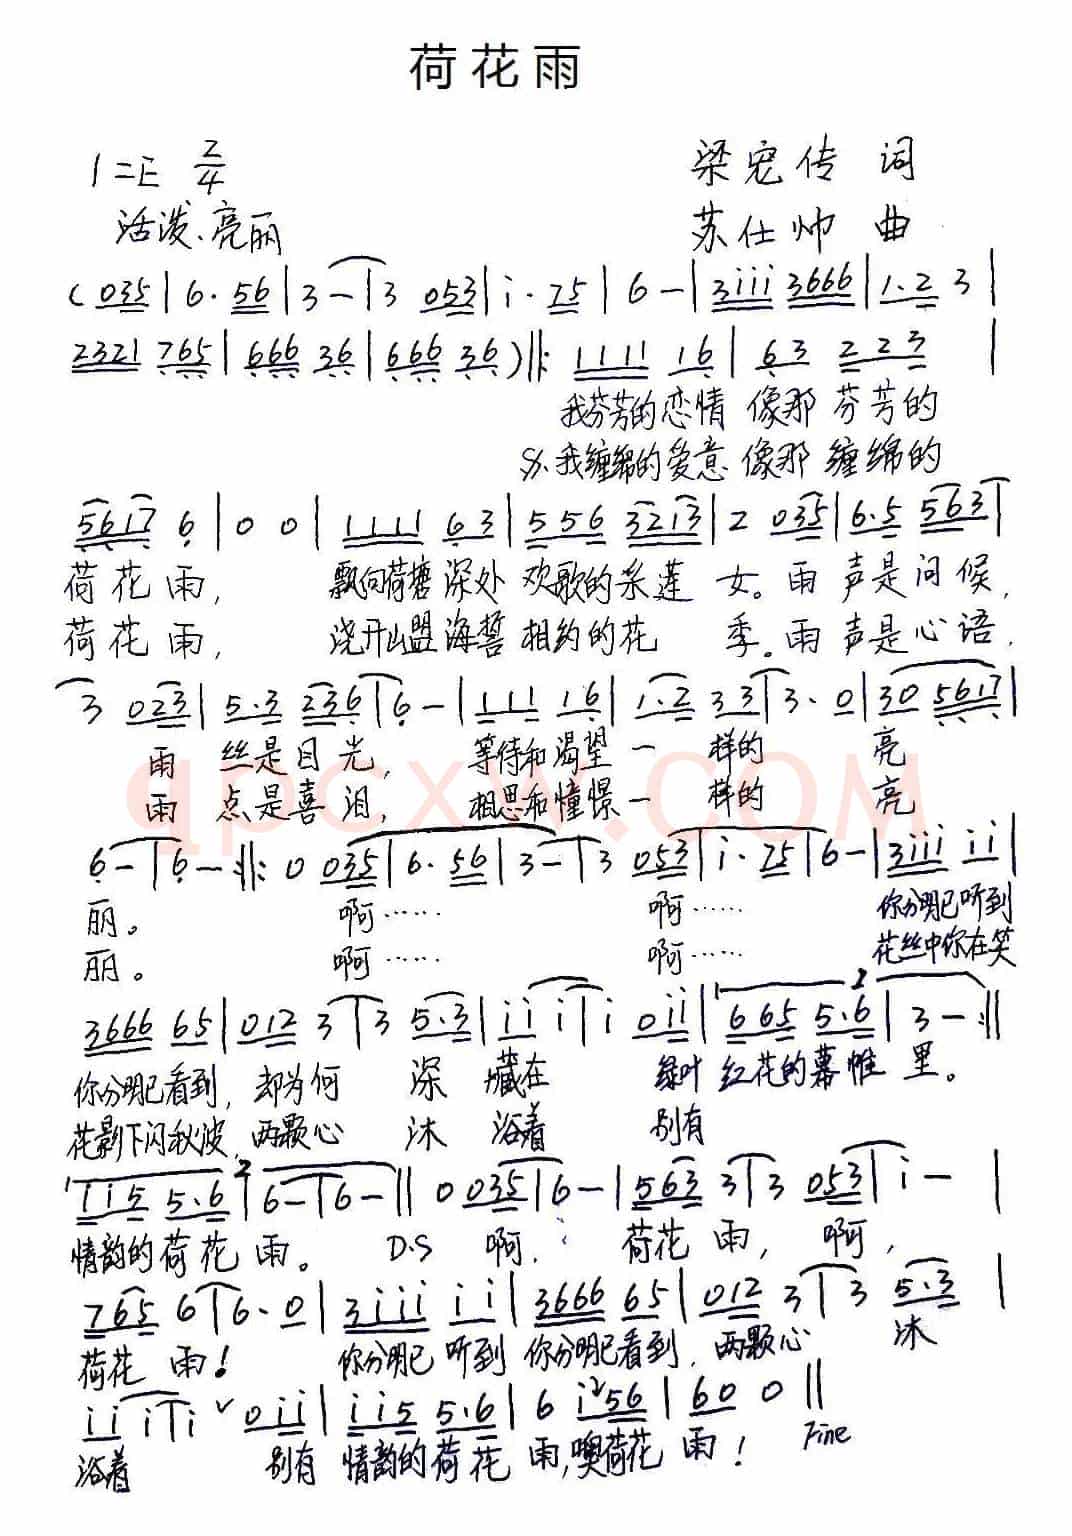 荷花雨
1=E 2/4
梁宪传 词
活泼、亮丽
苏仕帅 曲
(035|6·56|3-|3 053|i·75|6-|3iii 3666|1·2 3|
2321 765|666 36|666 36)‖:1111 16|63 223|
我芬芳的恋情 像那 芬芳的
我缠绵的爱意 像那 缠绵的
5617 6|0 0|1111 63|556 3213|2 035|6·5 563|
荷花雨, 飘向荷塘深处 欢歌的采莲 女。雨 声是问候,
荷花雨, 浇开山盟海誓 相约的花 季。雨 声是心语,
3 023|5·3 236|6-|111 16|1·2 33|3·0|30 5617|
雨 丝是目光, 等待和渴望 一 样的 亮
雨 点是喜泪, 相思和憧憬 一 样的 亮
qpcxw.COM
6-|6-:‖:0 035|6·56|3-|3 053|i·75|6-|3iii ii|
丽。 啊…… 啊…… 你分明已听到
丽。 啊…… 啊…… 花丝中你在笑
3666 65|012 3|3 5·3|ii i|i 0ii|665 5·6|3-:‖
你分明已看到, 却为何 深 藏在 绿叶 红花的幕帷 里。
花影下闪秋波, 两颗心 沐 浴着 别有
ii5 5·6|6-|6-‖0 035|6-|563 3|3 053|i-|
情韵的荷花 雨。 D.S 啊, 荷花 雨, 啊,
765 6|6·0|3iii ii|3666 65|012 3|3 5·3|
荷花 雨! 你分明已 听到 你分明已看到, 两颗心 沐
ii i|i 0ii|ii5 5·6|6 i56|60 0‖
Fine
浴着 别有 情韵的荷花 雨,噢荷花 雨!